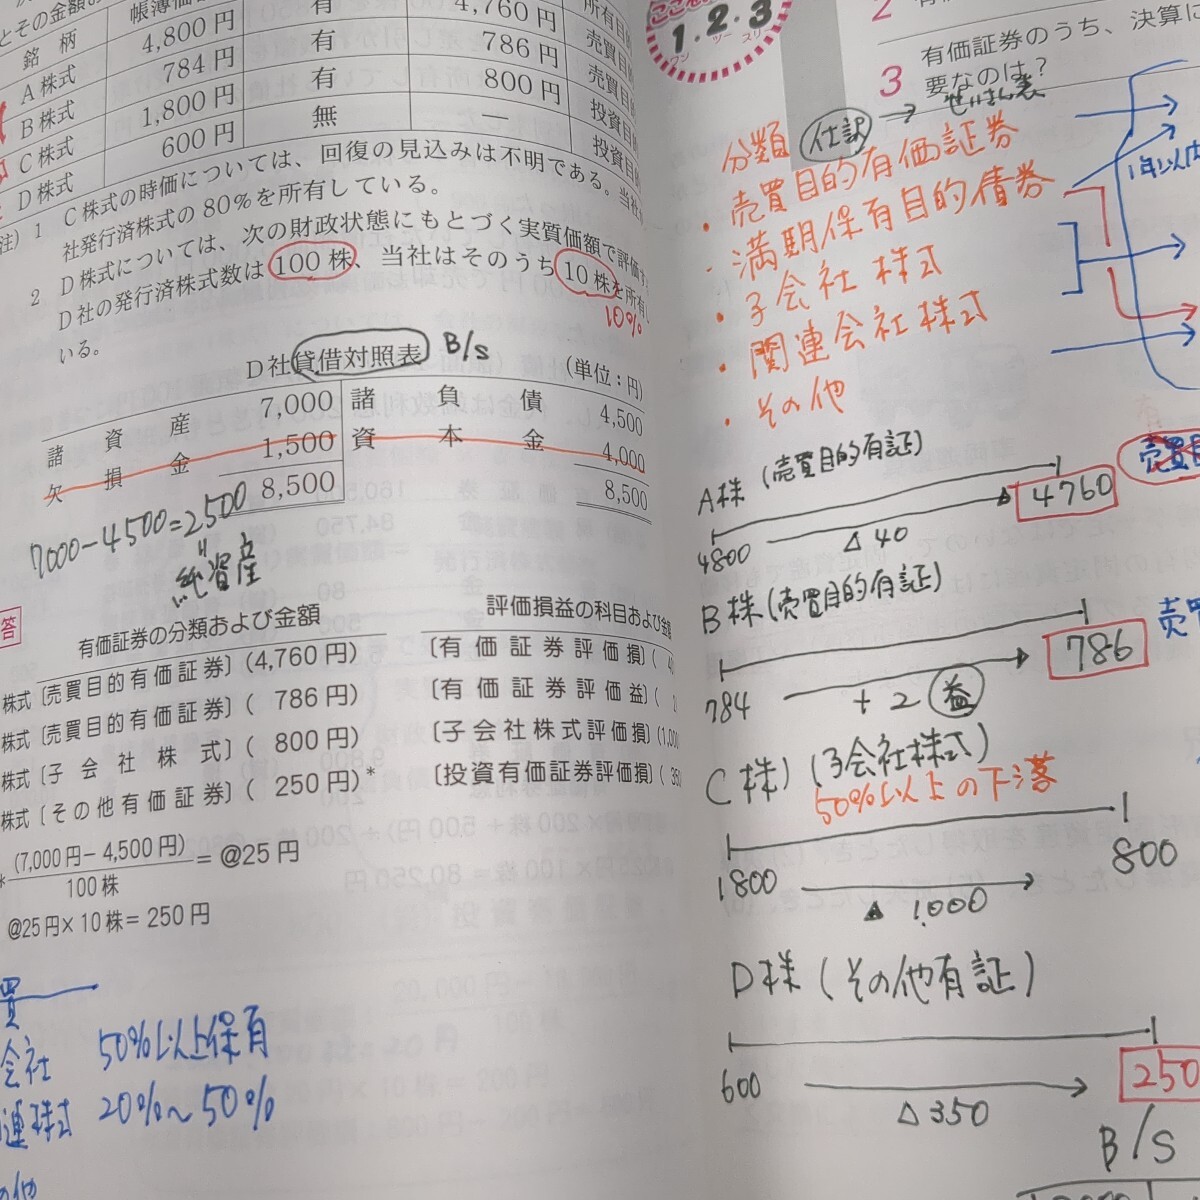 とその金額お
銘柄 帳簿価
A株式 4,800円 有 4,760円 所有目的
B株式 784円 有 786円 売買目的
C株式 1,800円 有 800円 投資目的
D株式 600円 無 ― 投資目
注) 1 C株式の時価については、回復の見込みは不明である。当社
社発行済株式の80%を所有している。
2 D株式については、次の財政状態にもとづく実質価額で評価す
D社の発行済株式数は100株、当社はそのうち10株を所有し
いる。
10%
D社貸借対照表 B/S (単位:円)
諸資産 7,000 諸負債 4,500
欠損金 1,500 資本金 4,000
8,500 8,500
7000-4500=2500
〃
純資産
答
有価証券の分類および金額 評価損益の科目および金額
株式〔売買目的有価証券〕(4,760円) 〔有価証券評価損〕( 4
株式〔売買目的有価証券〕( 786円) 〔有価証券評価益〕(
株式〔子会社株式〕( 800円) 〔子会社株式評価損〕(1,000
株式〔その他有価証券〕( 250円)* 〔投資有価証券評価損〕( 350
*(7,000円-4,500円)/100株=@25円
@25円×10株=250円
買
会社 50%以上保有
連株式 20%~50%
の他
ここ
1・2・3
ワン ツー スリー
2
3 有価証券のうち、決算に
要なのは?
仕訳 → せいさん表
分類
・売買目的有価証券
・満期保有目的債券
・子会社株式
・関連会社株式
・その他
1年以内
A株(売買目的有証)
4760
売買目
4800 △40
B株(売買目的有証)
786
売
784 +2 益
C株)(子会社株式)
50%以上の下落
1800 800
▲1000
D株(その他有証)
600 250
△350
B/S